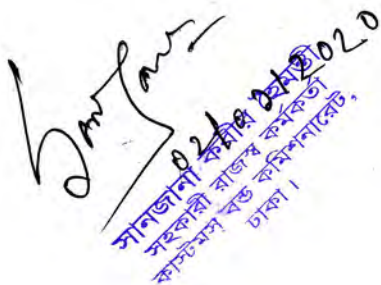 02/02/2020
সানজানা কবীর
সহকারী রাজস্ব কর্মকর্তা
কাস্টমস বন্ড কমিশনারেট,
ঢাকা।